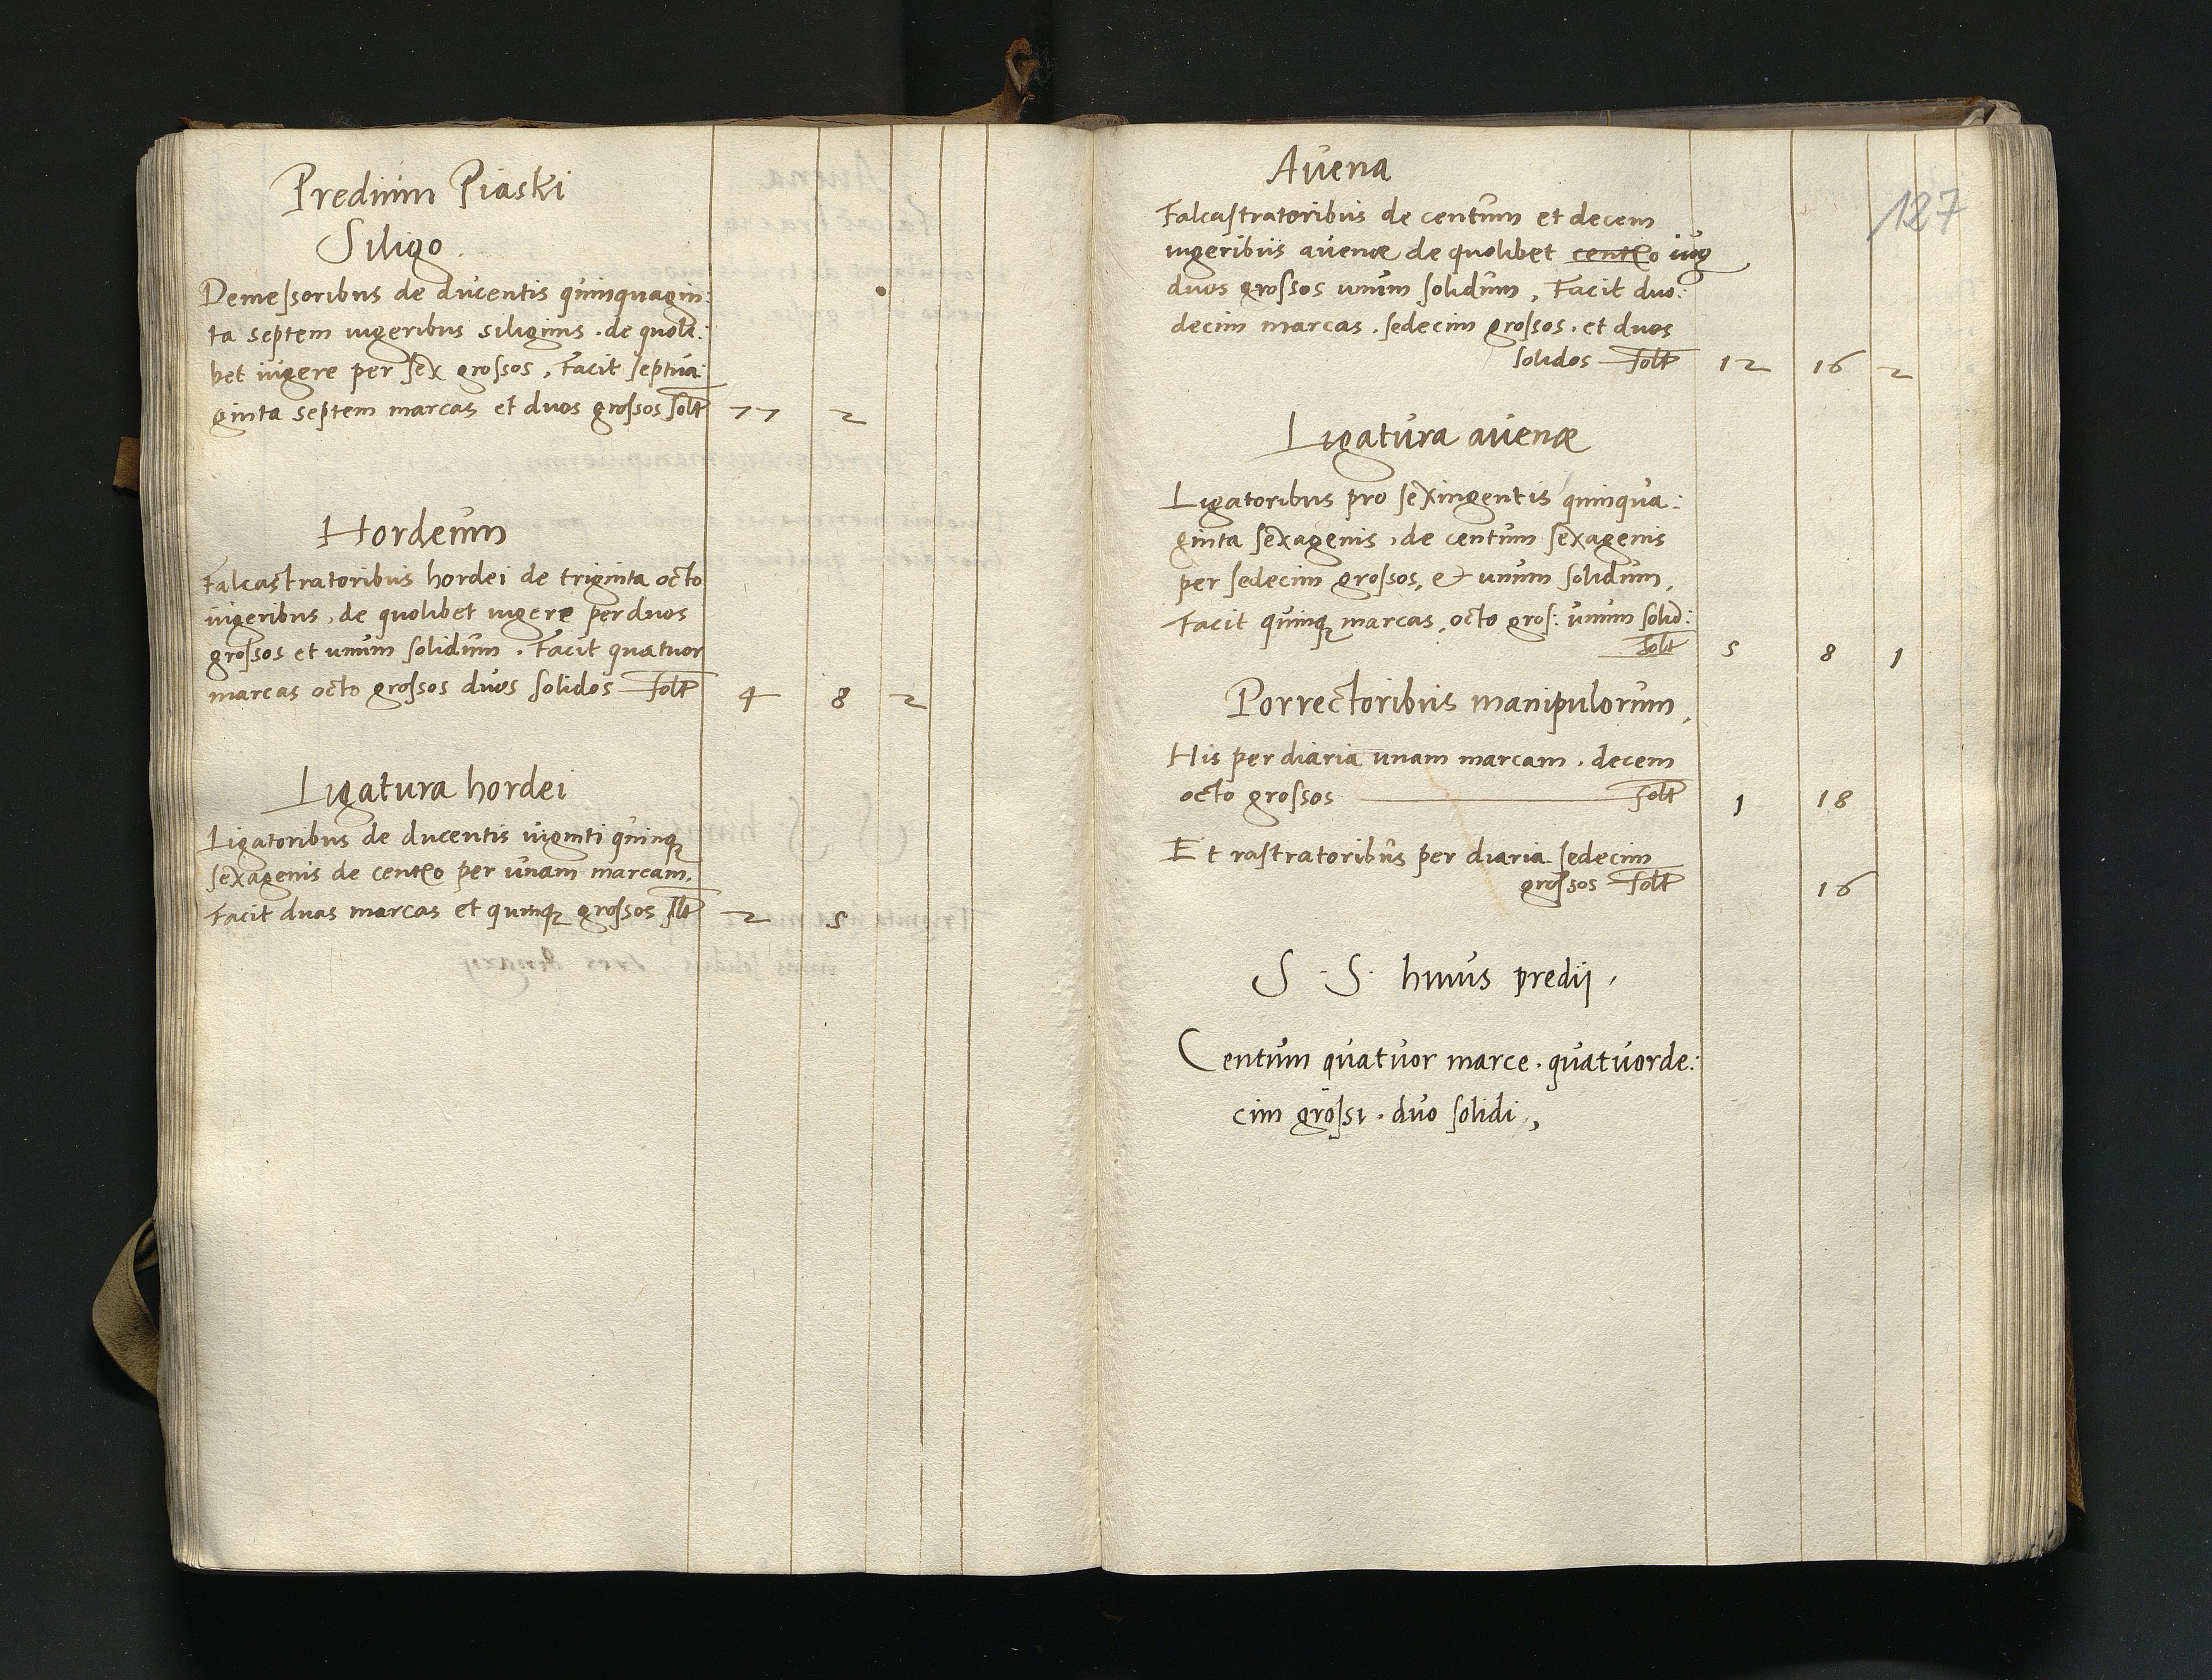 Predium Piaski
Siligo.
Demessoribus de ducentis quinquagin:
ta septem iugeribus siliginis . de quoli:
bet iugere per sex grossos, Facit septua:
ginta septem marcas et duos grossos solt 77 2
Hordeum
Falcastratoribus hordei de triginta octo
iugeribus, de quolibet iugere per duos
grossos et unum solidum . Facit quatuor
marcas octo grossos duos solidos solt 4 8 2
Ligatura hordei
Ligatoribus de ducentis viginti quinq
sexagenis de cento per unam marcam.
Facit duas marcas et quinq grossos solt 2 5
127
Avena
Falcastratoribus de centum et decem
iugeribus avenæ de quolibet cento iug
duos grossos unum solidum, Facit duo:
decim marcas . sedecim grossos . et duos
solidos solt 12 16 2
Ligatura avenæ
Ligatoribus pro sexingentis quinqua:
ginta sexagenis, de centum sexagenis
per sedecim grossos, et unum solidum,
Facit quinq marcas, octo gros: unum solid:
solt 5 8 1
Porrectoribus manipulorum,
His per diaria unam marcam . decem
octo grossos solt 1 18
Et rastratoribus per diaria sedecim
grossos solt 16
S . S . huius predij,
Centum quatuor marce . quatuorde:
cim grossi . duo solidi,